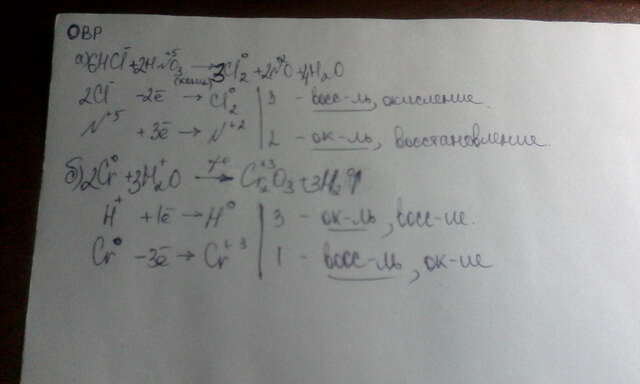 ОВР
а) 6HCl⁻ + 2HN⁺⁵O₃ (конц) → 3Cl₂⁰ + 2N⁺²O + 4H₂O
2Cl⁻ -2ē → Cl₂⁰ | 3 - восс-ль, окисление.
N⁺⁵ +3ē → N⁺² | 2 - ок-ль, восстановление.
б) 2Cr⁰ + 3H₂⁺O t⁰→ Cr₂⁺³O₃ + 3H₂⁰↑
H⁺ +1ē → H⁰ | 3 - ок-ль, восс-ие.
Cr⁰ -3ē → Cr⁺³ | 1 - восс-ль, ок-ие